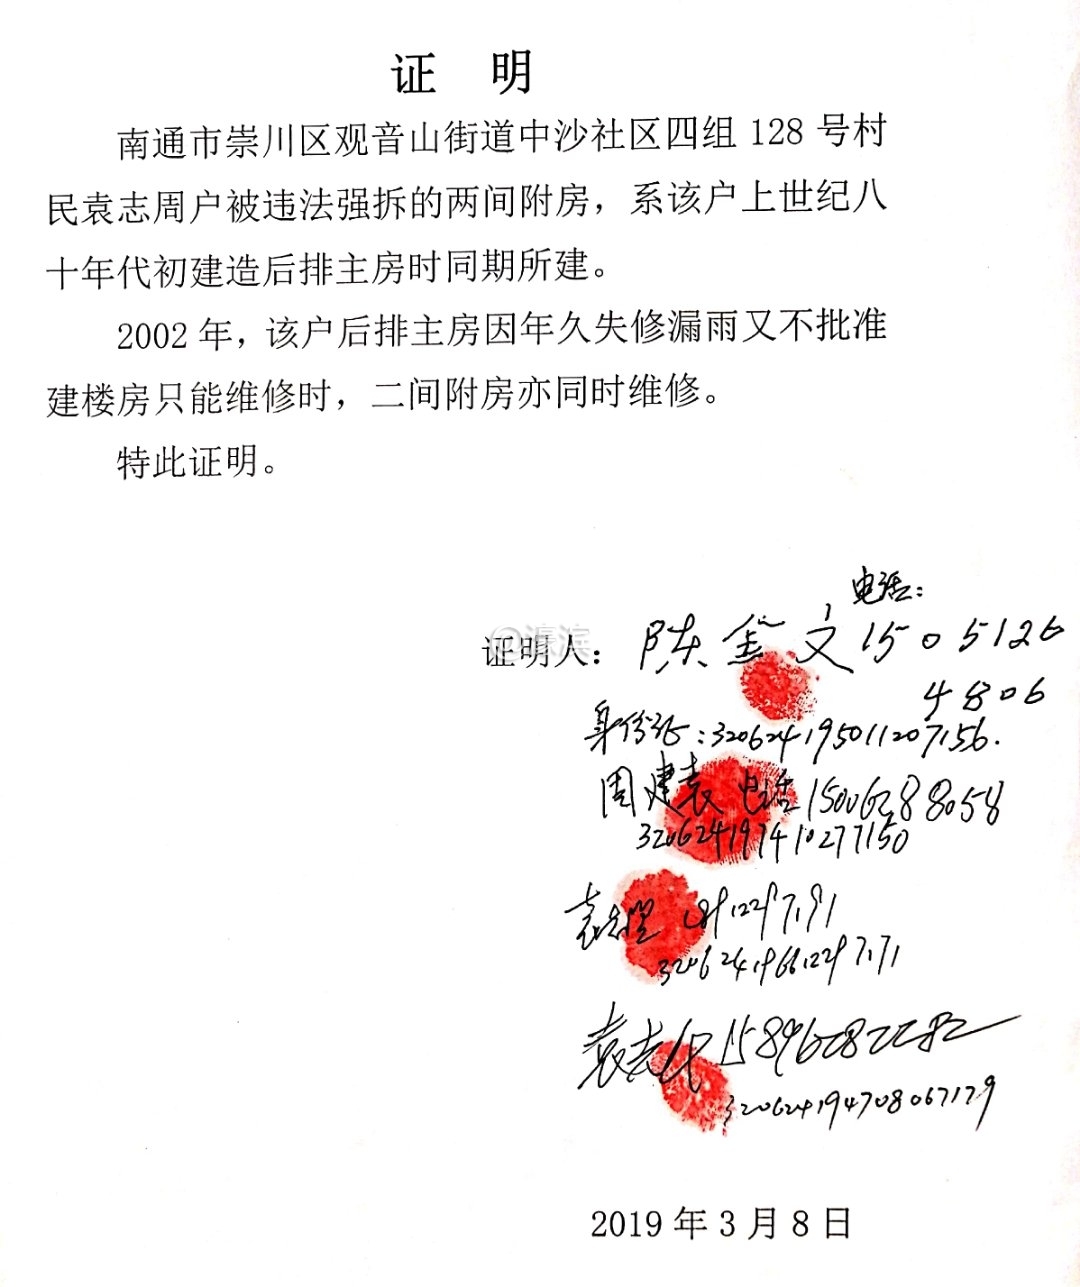 证 明
南通市崇川区观音山街道中沙社区四组 128 号村
民袁志周户被违法强拆的两间附房，系该户上世纪八
十年代初建造后排主房时同期所建。
2002 年，该户后排主房因年久失修漏雨又不批准
建楼房只能维修时，二间附房亦同时维修。
特此证明。
电话：
证明人：陈金文 1505126
4806
@濠滨
身份证：320624195011207156.
周建袁 电话 15006288058
320624197410277150
袁志
袁志华 15896282282
320624194708067179
2019 年 3 月 8 日